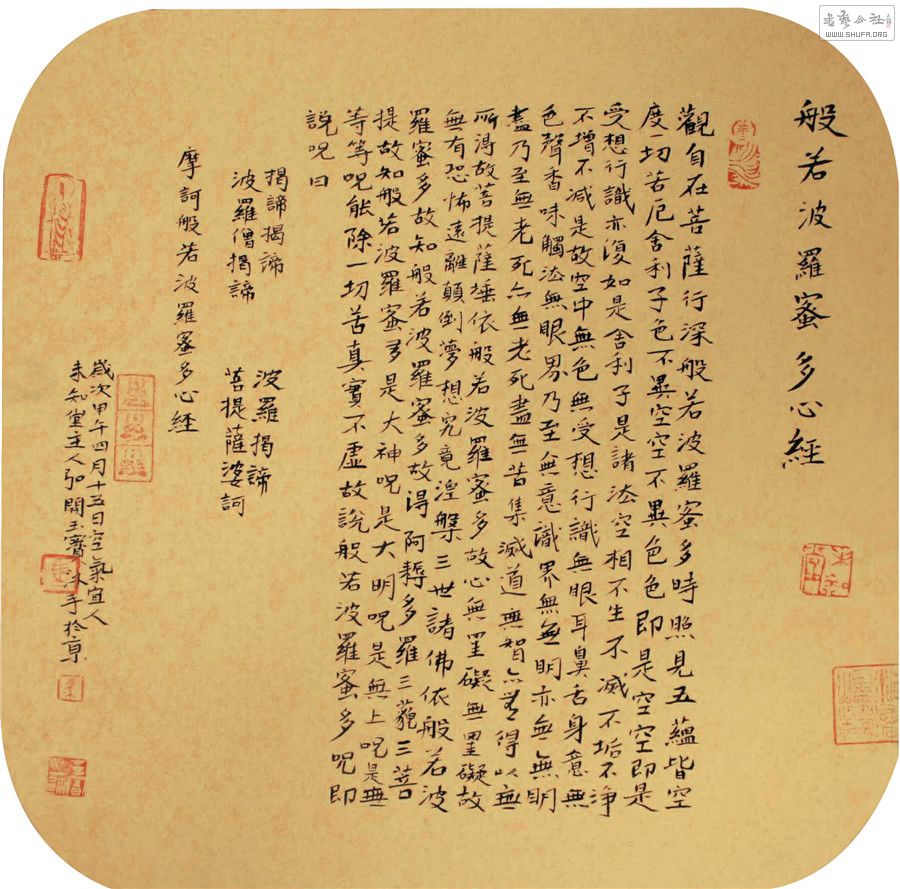 般若波羅蜜多心經
觀自在菩薩行深般若波羅蜜多時照見五蘊皆空
度一切苦厄舍利子色不異空空不異色色即是空空即是
受想行識亦復如是舍利子是諸法空相不生不滅不垢不淨
不增不减是故空中無色無受想行識無眼耳鼻舌身意無
色聲香味觸法無眼界乃至無意識界無無明亦無無明
盡乃至無老死亦無老死盡無苦集滅道無智亦無得以無
所得故菩提薩埵依般若波羅蜜多故心無罣礙無罣礙故
無有恐怖遠離顛倒夢想究竟涅槃三世諸佛依般若波
羅蜜多故知般若波羅蜜多故得阿耨多羅三藐三菩
提故知般若波羅蜜多是大神呪是大明呪是無上呪是無
等等呪能除一切苦真實不虛故說般若波羅蜜多呪即
說呪曰
揭諦揭諦 波羅揭諦
波羅僧揭諦 菩提薩婆訶
摩訶般若波羅蜜多心經
歲次甲午四月十五日空氣宜人
未知堂主人弘閣玉寶沐手於京
未知堂
書藝公社
WWW.SHUFA.ORG